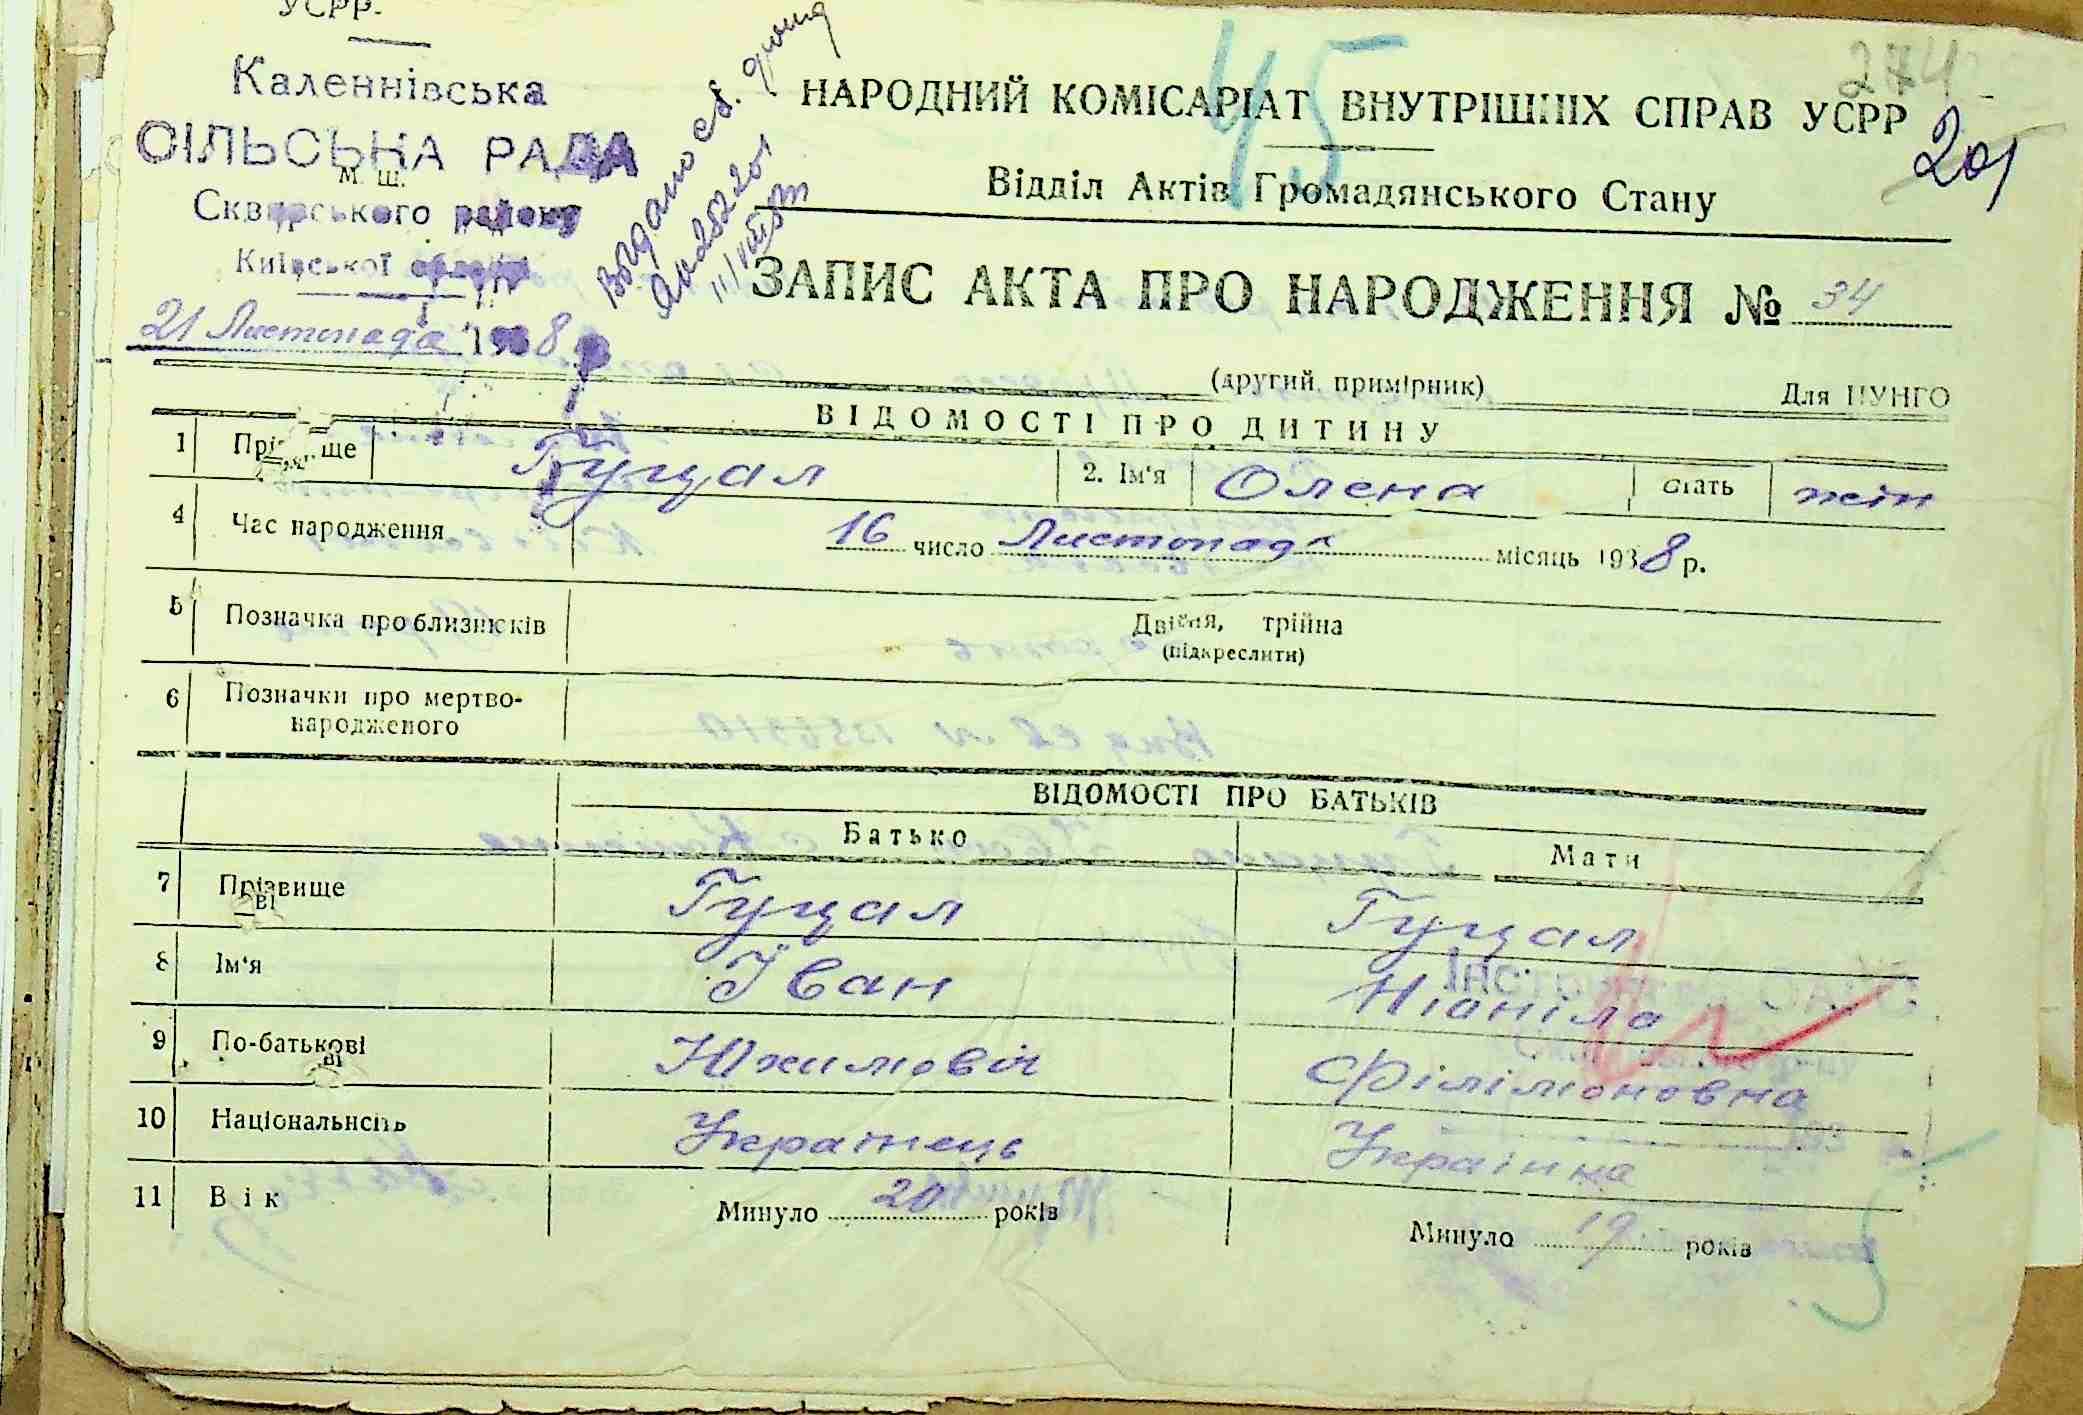 УСРР.
Каленнівська
СІЛЬСЬКА РАДА
м. ш.
Сквирського району
Київської області
21 Листопада 1938 р
45
274
НАРОДНИЙ КОМІСАРІАТ ВНУТРІШНІХ СПРАВ УСРР
205
Відділ Актів Громадянського Стану
ЗАПИС АКТА ПРО НАРОДЖЕННЯ № 34
(другий примірник) Для ЦУНГО
ВІДОМОСТІ ПРО ДИТИНУ
1 Прізвище Гуцал 2. Ім'я Олена Стать жін
4 Час народження 16 число Листопада місяць 1938 р.
5 Позначка про близнюсків Двійня, трійна
(підкреслити)
6 Позначки про мертво-
народженого
ВІДОМОСТІ ПРО БАТЬКІВ
Батько Мати
7 Прізвище Гуцал Гуцал
8 Ім'я Іван Ніаніла
9 По-батькові Юхимовіч Філімоновна
10 Національність Украінець Украінка
11 Вік Минуло 20 років Минуло 19 років